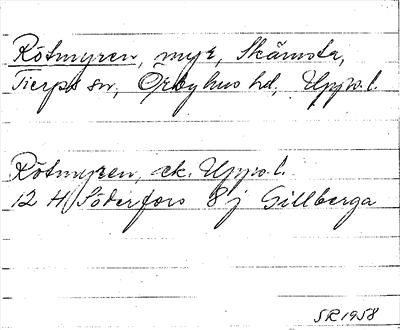 Rötmyren, myr, Skämsta,
Tierps sn, Örbyhus hd, Upps. l.
Rötmyren, ek. Upps. l.
12 H Söderfors 8 j Gillberga
SR 1958